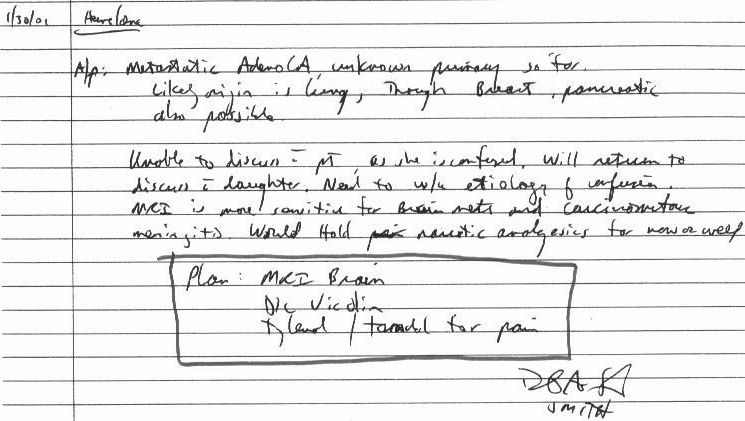 1/30/01 Heme/Onc
A/P: Metastatic AdenoCA, unknown primary so far.
Likely origin is lung, Though Breast, pancreatic
also possible.
Unable to discuss c̄ pt, as she is confused. Will return to
discuss c̄ daughter. Need to w/u etiology of confusion.
MRI is more sensitive for Brain mets and carcinomatous
meningitis. Would Hold narcotic analgesics for now as well
Plan: MRI Brain
D/c Vicodin
Tylenol / tramadol for pain
SMITH